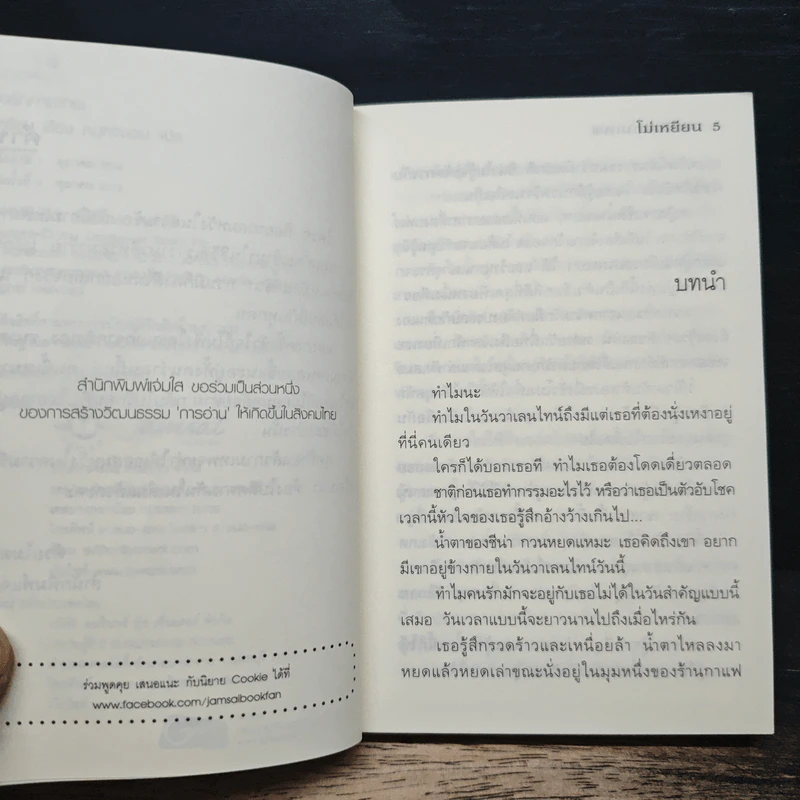 สำนักพิมพ์แจ่มใส ขอร่วมเป็นส่วนหนึ่ง
ของการสร้างวัฒนธรรม 'การอ่าน' ให้เกิดขึ้นในสังคมไทย
ร่วมพูดคุย เสนอแนะ กับนิยาย Cookie ได้ที่
www.facebook.com/jamsaibookfan
โม่เหยียน 5
บทนำ
ทำไมนะ
ทำไมในวันวาเลนไทน์ถึงมีแต่เธอที่ต้องนั่งเหงาอยู่
ที่นี่คนเดียว
ใครก็ได้บอกเธอที ทำไมเธอต้องโดดเดี่ยวตลอด
ชาติก่อนเธอทำกรรมอะไรไว้ หรือว่าเธอเป็นตัวอับโชค
เวลานี้หัวใจของเธอรู้สึกอ้างว้างเกินไป...
น้ำตาของซีน่า กวนหยดแหมะ เธอคิดถึงเขา อยาก
มีเขาอยู่ข้างกายในวันวาเลนไทน์วันนี้
ทำไมคนรักมักจะอยู่กับเธอไม่ได้ในวันสำคัญแบบนี้
เสมอ วันเวลาแบบนี้จะยาวนานไปถึงเมื่อไหร่กัน
เธอรู้สึกรวดร้าวและเหนื่อยล้า น้ำตาไหลลงมา
หยดแล้วหยดเล่าขณะนั่งอยู่ในมุมหนึ่งของร้านกาแฟ